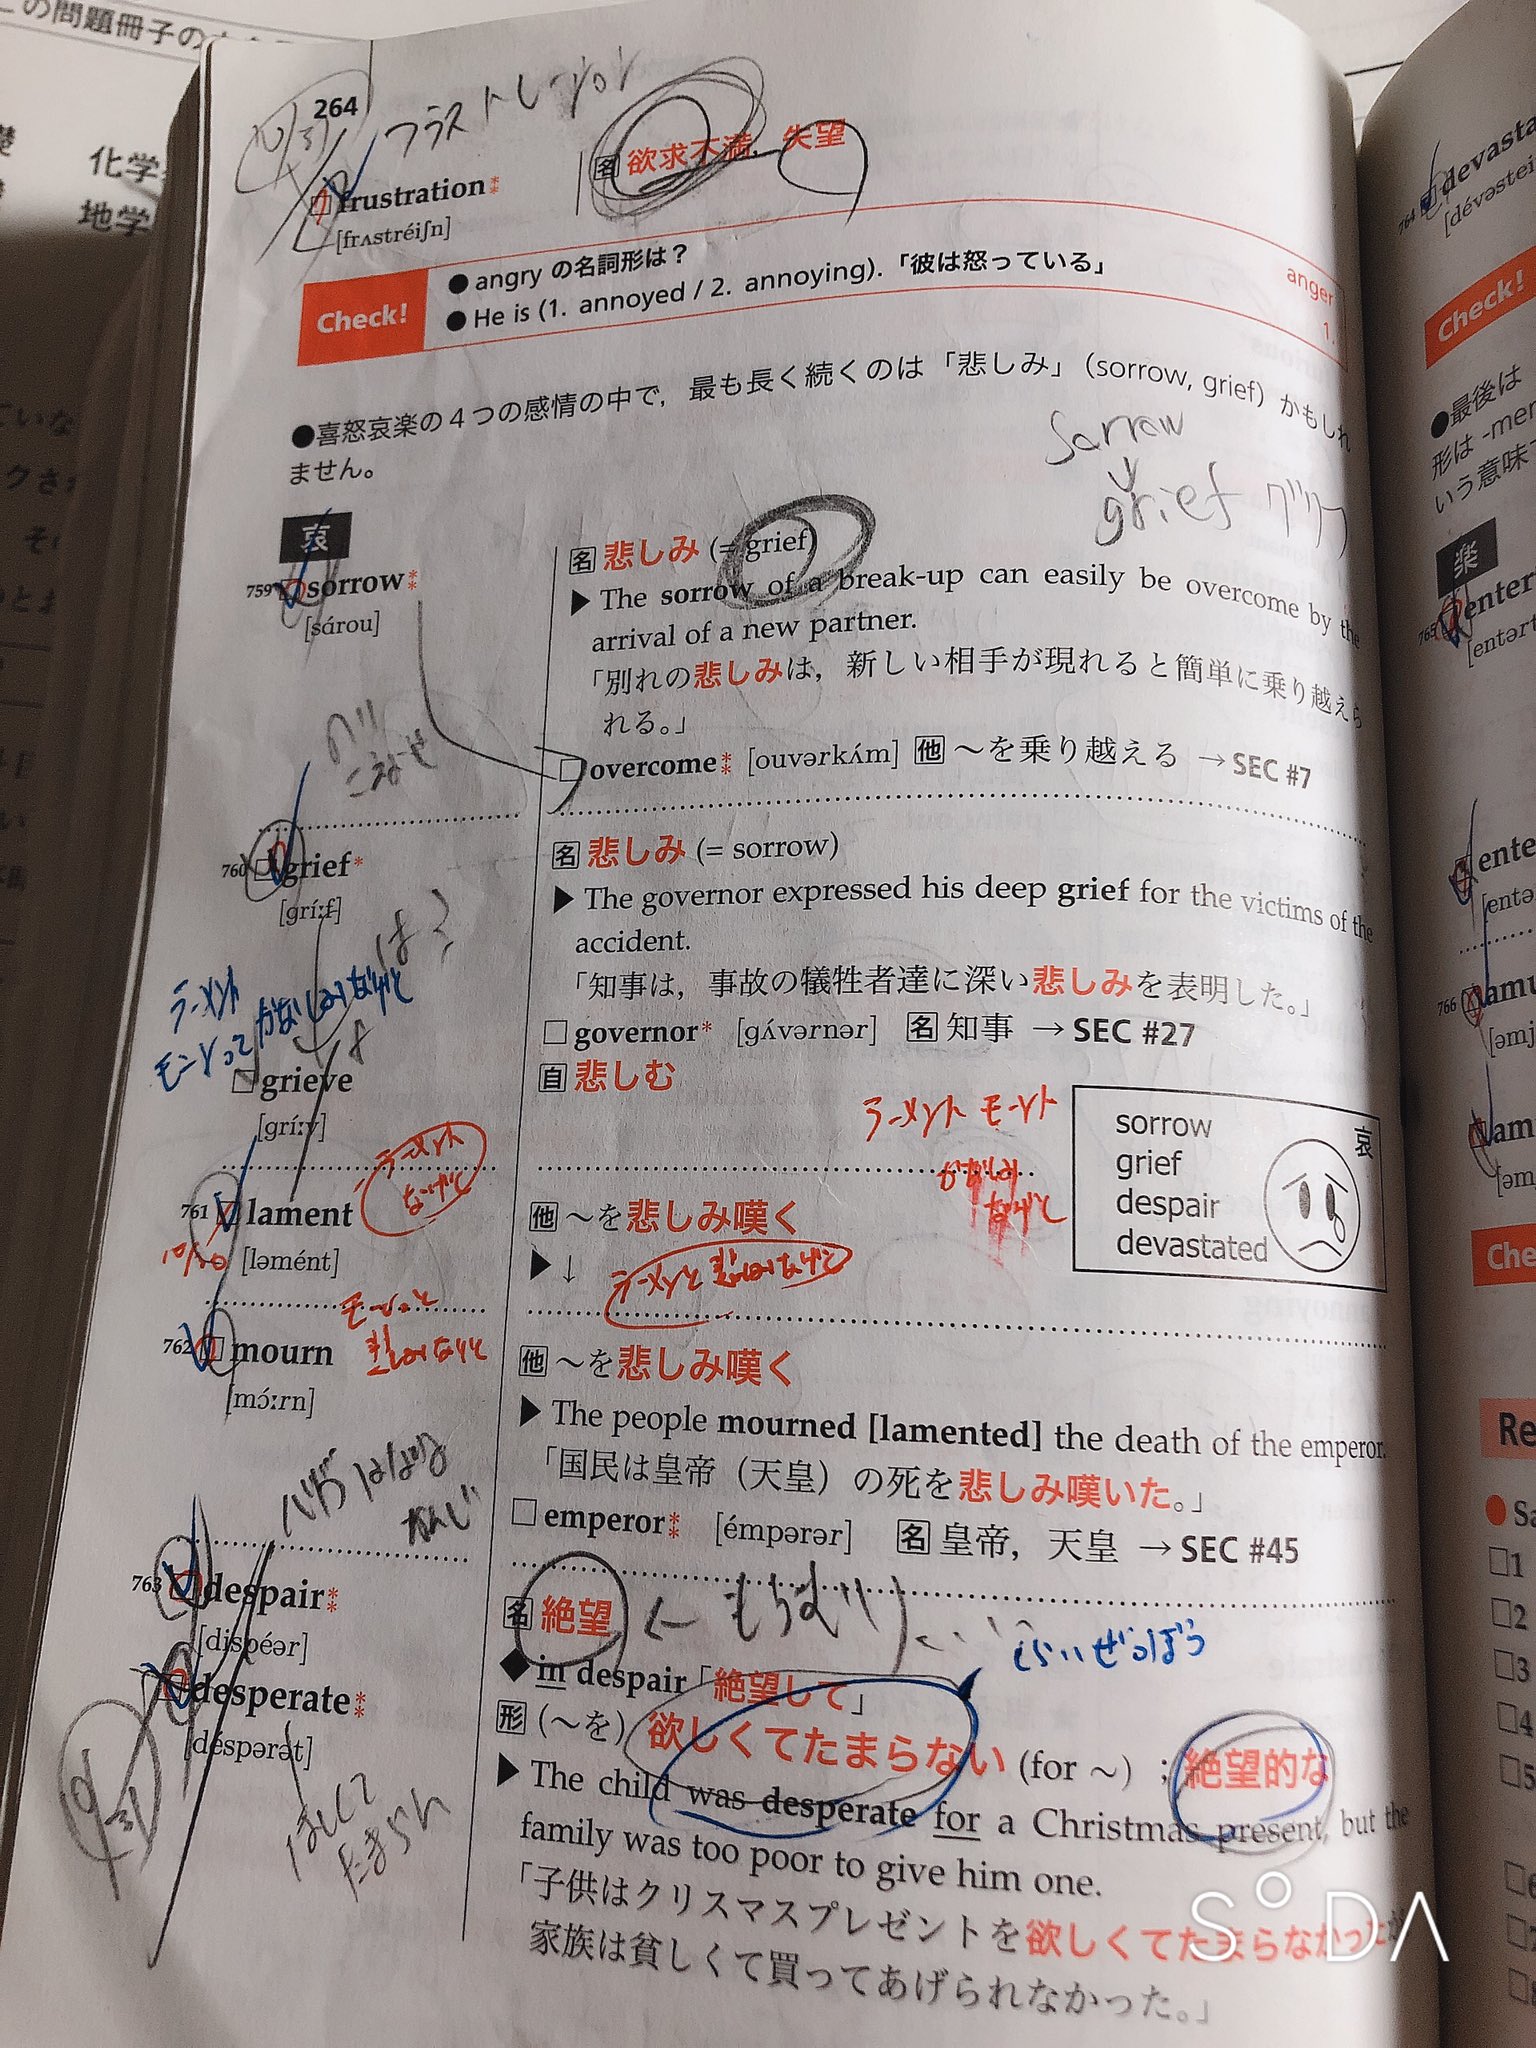 この問題冊子の
化学
地学
264
フラストレーション
frustration
[frʌstréiʃn]
名 欲求不満，失望
Check!
● angry の名詞形は？
anger
● He is (1. annoyed / 2. annoying).「彼は怒っている」
1.
●喜怒哀楽の４つの感情の中で，最も長く続くのは「悲しみ」（sorrow, grief）かもしれ
ません。
sorrow
grief グリーフ
哀
759 sorrow
[sárou]
名 悲しみ (= grief)
▶ The sorrow of a break-up can easily be overcome by the
arrival of a new partner.
「別れの悲しみは，新しい相手が現れると簡単に乗り越えら
れる。」
□ overcome [ouvərkʌ́m] 他 ～を乗り越える → SEC #7
760 grief*
[gríːf]
名 悲しみ (= sorrow)
▶ The governor expressed his deep grief for the victims of the
accident.
「知事は，事故の犠牲者達に深い悲しみを表明した。」
□ governor* [gʌ́vərnər] 名 知事 → SEC #27
□ grieve
[gríːv]
自 悲しむ
ラーメント モーント
かなしみ
なげく
sorrow
grief
despair
devastated
哀
761 lament
[ləmént]
10/30
ラーメント
なげく
他 ～を悲しみ嘆く
▶ ↓
762 mourn
[mɔ́ːrn]
他 ～を悲しみ嘆く
▶ The people mourned [lamented] the death of the emperor.
「国民は皇帝（天皇）の死を悲しみ嘆いた。」
□ emperor [émpərər] 名 皇帝，天皇 → SEC #45
763 despair
[dispéər]
名 絶望
くらいぜつぼう
◆ in despair「絶望して」
desperate
[déspərət]
形 (～を) 欲しくてたまらない (for ～)；絶望的な
▶ The child was desperate for a Christmas present, but the
family was too poor to give him one.
「子供はクリスマスプレゼントを欲しくてたまらなかったが
家族は貧しくて買ってあげられなかった。」
ほしくて
たまらん
764 devasta
[dévəstei
Check!
●最後は
形は -men
いう意味
楽
765 enter
[entərt
ente
[entə
766 amu
[əmj
am
[əm
Che
Re
● Sa
□1
□2
□3
□4
□5
SODA